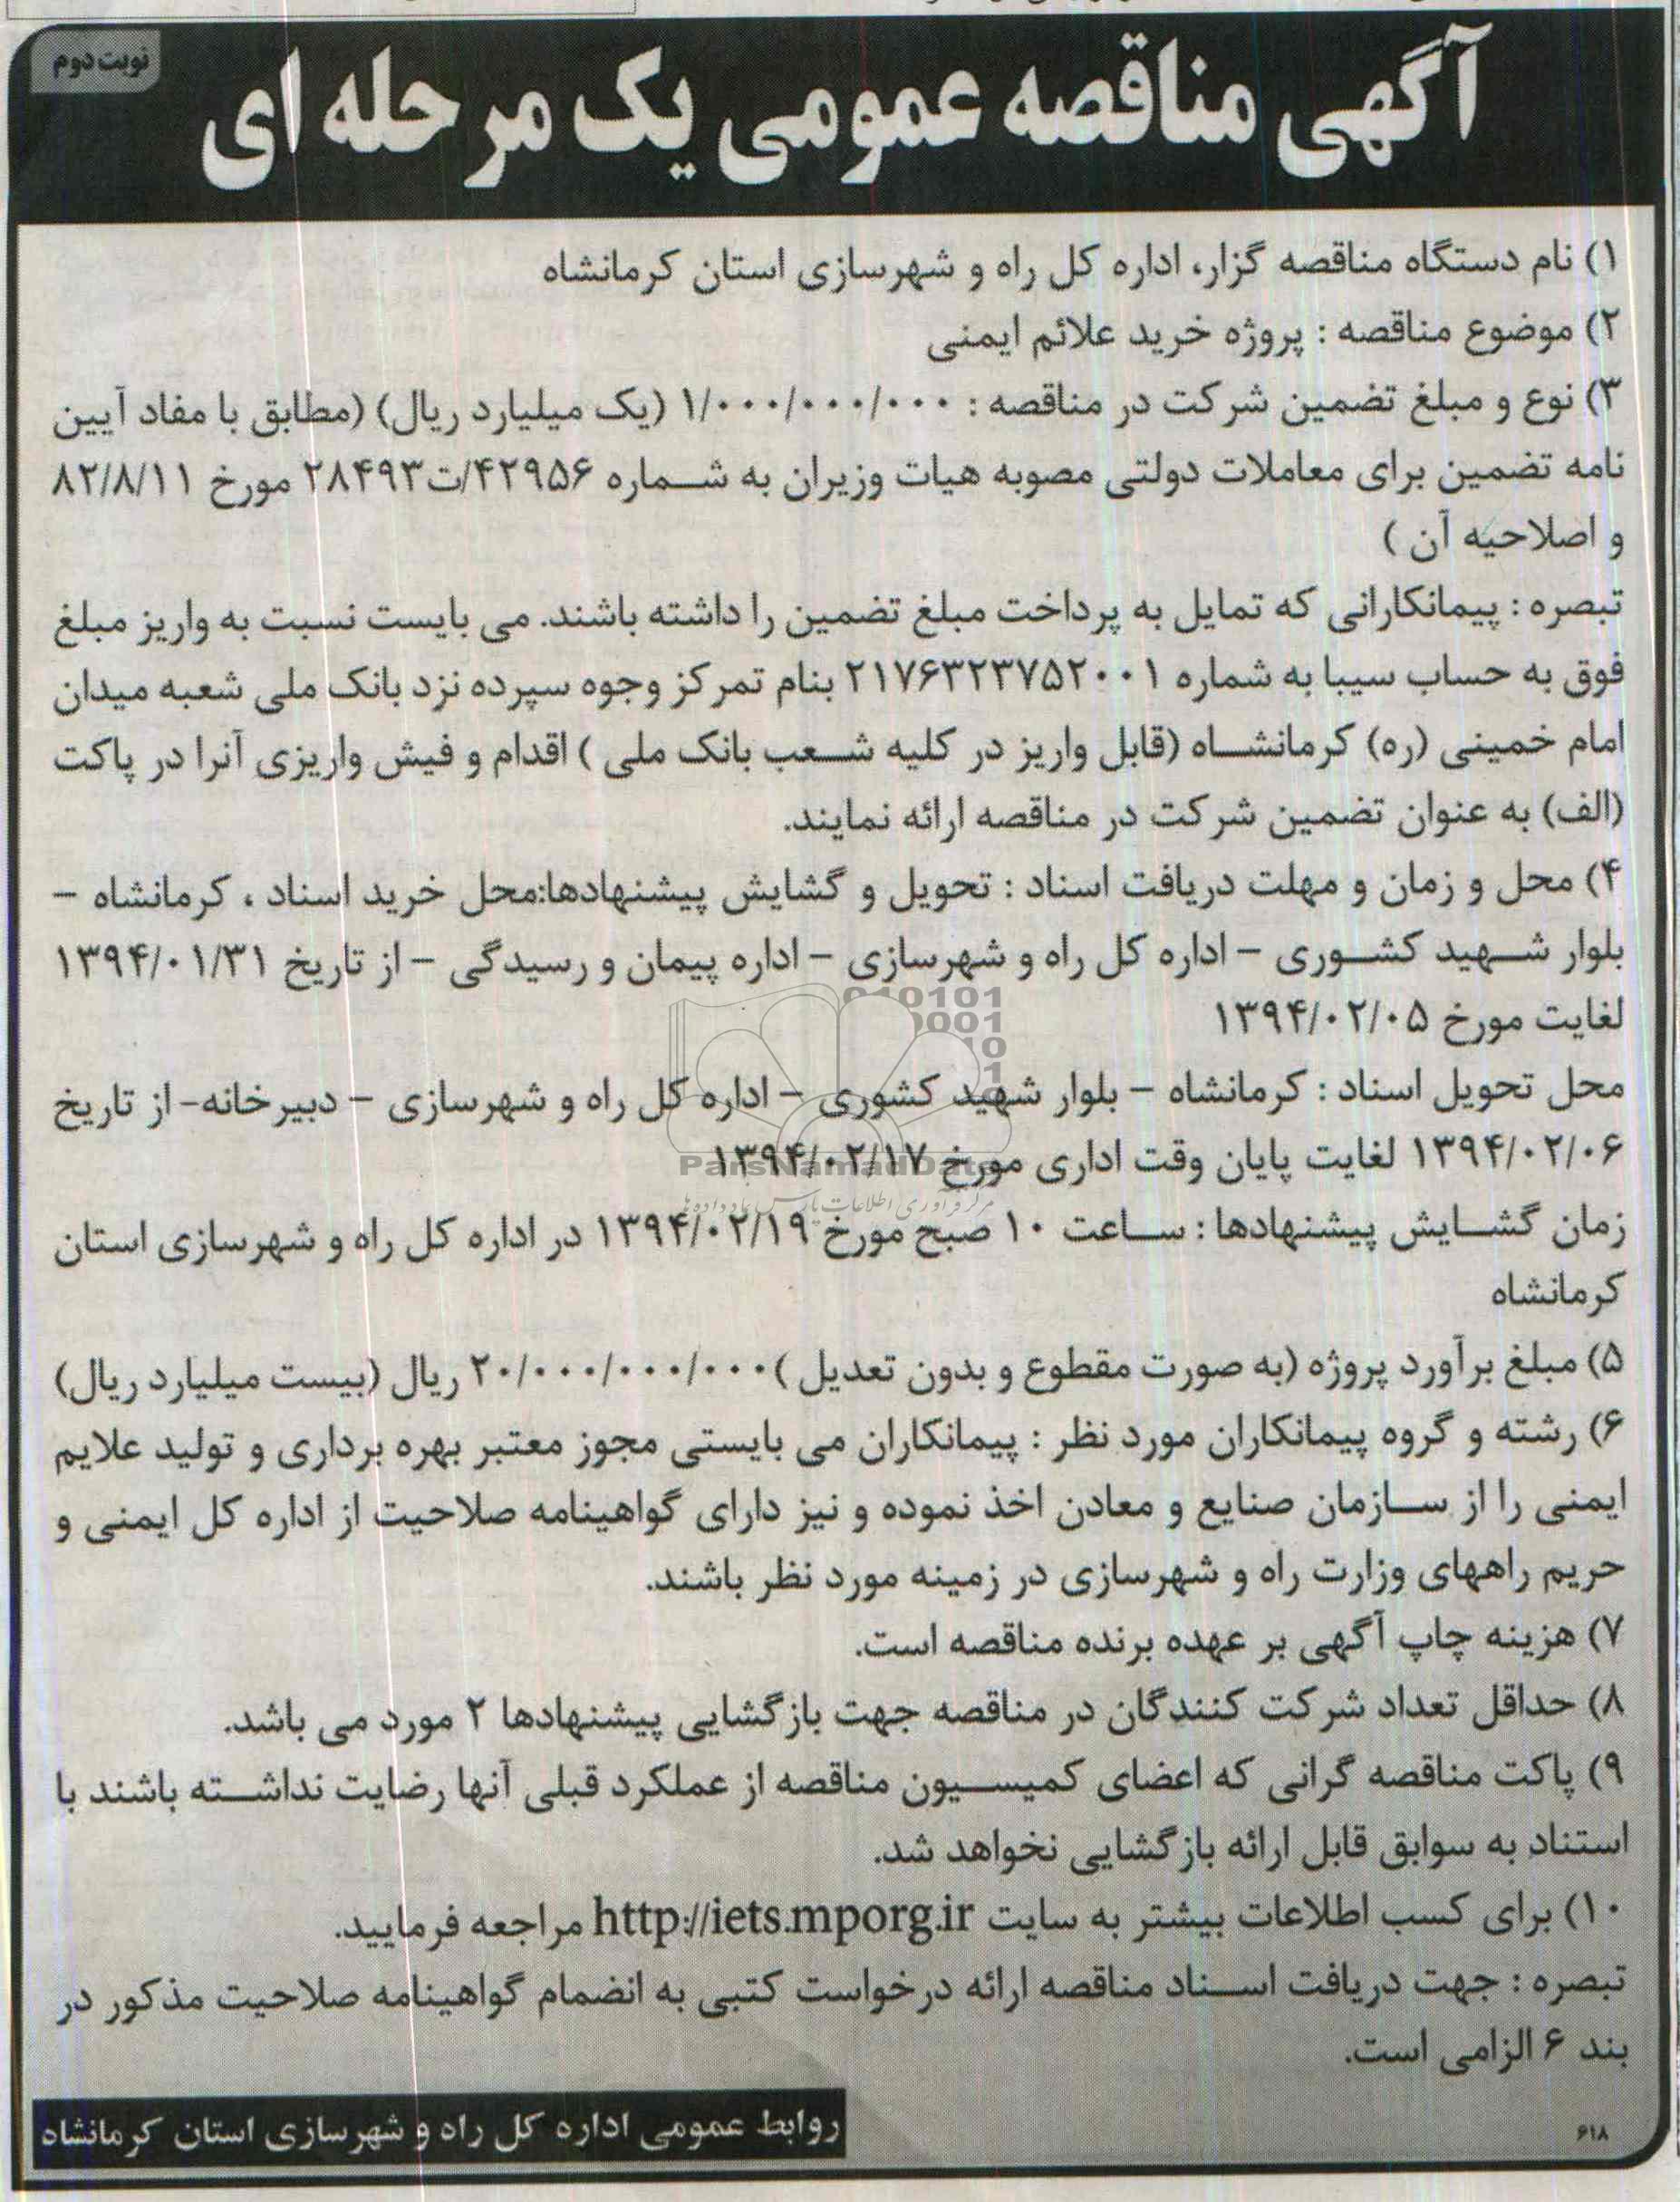 نوبت دوم
آگهی مناقصه عمومی یک مرحله ای
۱) نام دستگاه مناقصه گزار، اداره کل راه و شهرسازی استان کرمانشاه
۲) موضوع مناقصه : پروژه خرید علائم ایمنی
۳) نوع و مبلغ تضمین شرکت در مناقصه : ۱/۰۰۰/۰۰۰/۰۰۰ (یک میلیارد ریال) (مطابق با مفاد آیین
نامه تضمین برای معاملات دولتی مصوبه هیات وزیران به شماره ۴۲۹۵۶/ت۲۸۴۹۳ مورخ ۸۲/۸/۱۱
و اصلاحیه آن )
تبصره : پیمانکارانی که تمایل به پرداخت مبلغ تضمین را داشته باشند. می بایست نسبت به واریز مبلغ
فوق به حساب سیبا به شماره ۲۱۷۶۳۲۳۷۵۲۰۰۱ بنام تمرکز وجوه سپرده نزد بانک ملی شعبه میدان
امام خمینی (ره) کرمانشاه (قابل واریز در کلیه شعب بانک ملی ) اقدام و فیش واریزی آنرا در پاکت
(الف) به عنوان تضمین شرکت در مناقصه ارائه نمایند.
۴) محل و زمان و مهلت دریافت اسناد : تحویل و گشایش پیشنهادها:محل خرید اسناد ، کرمانشاه –
بلوار شهید کشوری – اداره کل راه و شهرسازی – اداره پیمان و رسیدگی – از تاریخ ۱۳۹۴/۰۱/۳۱
لغایت مورخ ۱۳۹۴/۰۲/۰۵
محل تحویل اسناد : کرمانشاه – بلوار شهید کشوری – اداره کل راه و شهرسازی – دبیرخانه- از تاریخ
۱۳۹۴/۰۲/۰۶ لغایت پایان وقت اداری مورخ ۱۳۹۴/۰۲/۱۷
ParsNamadData
مرکز فرآوری اطلاعات پارس نماد داده ها
زمان گشایش پیشنهادها : ساعت ۱۰ صبح مورخ ۱۳۹۴/۰۲/۱۹ در اداره کل راه و شهرسازی استان
کرمانشاه
۵) مبلغ برآورد پروژه (به صورت مقطوع و بدون تعدیل )۲۰/۰۰۰/۰۰۰/۰۰۰ ریال (بیست میلیارد ریال)
۶) رشته و گروه پیمانکاران مورد نظر : پیمانکاران می بایستی مجوز معتبر بهره برداری و تولید علایم
ایمنی را از سازمان صنایع و معادن اخذ نموده و نیز دارای گواهینامه صلاحیت از اداره کل ایمنی و
حریم راههای وزارت راه و شهرسازی در زمینه مورد نظر باشند.
۷) هزینه چاپ آگهی بر عهده برنده مناقصه است.
۸) حداقل تعداد شرکت کنندگان در مناقصه جهت بازگشایی پیشنهادها ۲ مورد می باشد.
۹) پاکت مناقصه گرانی که اعضای کمیسیون مناقصه از عملکرد قبلی آنها رضایت نداشته باشند با
استناد به سوابق قابل ارائه بازگشایی نخواهد شد.
۱۰) برای کسب اطلاعات بیشتر به سایت http://iets.mporg.ir مراجعه فرمایید.
تبصره : جهت دریافت اسناد مناقصه ارائه درخواست کتبی به انضمام گواهینامه صلاحیت مذکور در
بند ۶ الزامی است.
۶۱۸
روابط عمومی اداره کل راه و شهرسازی استان کرمانشاه